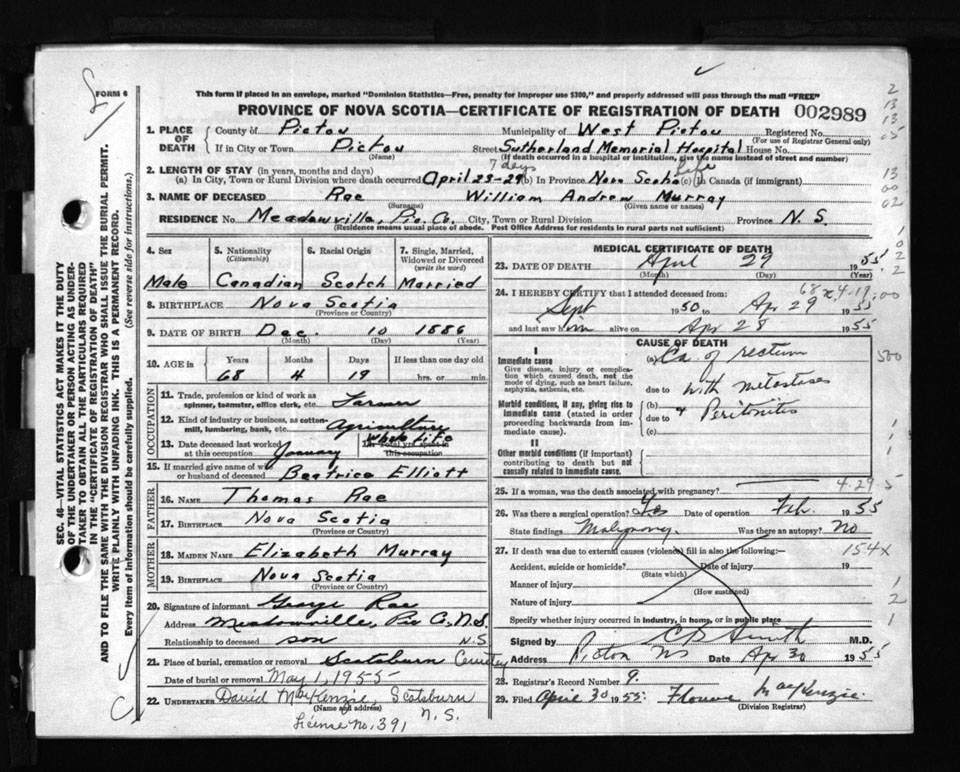 FORM 6
This form if placed in an envelope, marked "Dominion Statistics—Free, penalty for improper use $300," and properly addressed will pass through the mail "FREE"
PROVINCE OF NOVA SCOTIA—CERTIFICATE OF REGISTRATION OF DEATH 002989
1. PLACE OF DEATH
County of Pictou Municipality of West Pictou Registered No.
(For use of Registrar General only)
If in City or Town Pictou Street Sutherland Memorial Hospital House No.
(Name) (If death occurred in a hospital or institution, give the name instead of street and number)
2. LENGTH OF STAY (in years, months and days)
7 days Life
(a) In City, Town or Rural Division where death occurred April 23-29 (b) In Province Nova Scotia (c) In Canada (if immigrant)
3. NAME OF DECEASED Rae William Andrew Murray
(Surname) (Given name or names)
RESIDENCE No. Meadowville, Pic. Co. City, Town or Rural Division Province N.S.
(Residence means usual place of abode. Post Office Address for residents in rural parts not sufficient)
4. Sex Male
5. Nationality (Citizenship) Canadian
6. Racial Origin Scotch
7. Single, Married, Widowed or Divorced (write the word) Married
8. BIRTHPLACE Nova Scotia
(Province or Country)
9. DATE OF BIRTH Dec. 10 1886
(Month) (Day) (Year)
10. AGE in Years Months Days If less than one day old
68 4 19 hrs. or min.
OCCUPATION
11. Trade, profession or kind of work as spinner, teamster, office clerk, etc. Farmer
12. Kind of industry or business, as cotton-mill, lumbering, bank, etc. Agriculture
13. Date deceased last worked at this occupation January
whole life
15. If married give name of wife or husband of deceased Beatrice Elliott
FATHER
16. NAME Thomas Rae
17. BIRTHPLACE Nova Scotia
(Province or Country)
MOTHER
18. MAIDEN NAME Elizabeth Murray
19. BIRTHPLACE Nova Scotia
(Province or Country)
20. Signature of informant George Rae
Address Meadowville, Pic Co. N.S.
Relationship to deceased son N.S
21. Place of burial, cremation or removal Scotsburn Cemetery
Date of burial or removal May 1, 1955
22. UNDERTAKER David MacKenzie, Scotsburn
(Name and address) N.S.
License No. 391
MEDICAL CERTIFICATE OF DEATH
23. DATE OF DEATH April 29 1955
(Month) (Day) (Year)
68 x 4-19
24. I HEREBY CERTIFY that I attended deceased from:
Sept 1950 to Apr 29 1955
and last saw him alive on Apr 28 1955
CAUSE OF DEATH
I
Immediate cause
Give disease, injury or complication which caused death, not the mode of dying, such as heart failure, asphyxia, asthenia, etc.
(a) Ca. of rectum
due to with metastases
Morbid conditions, if any, giving rise to immediate cause (stated in order proceeding backwards from immediate cause).
(b) & Peritonitis
due to
(c)
II
Other morbid conditions (if important) contributing to death but not causally related to immediate cause.
25. If a woman, was the death associated with pregnancy? 4-29-5
26. Was there a surgical operation? Yes Date of operation Feb. 1955
State findings Malignancy Was there an autopsy? No
27. If death was due to external causes (violence) fill in also the following:— 154x
Accident, suicide or homicide? Date of injury 19
(State which)
Manner of injury
(How sustained)
Nature of injury
Specify whether injury occurred in industry, in home, or in public place
Signed by C B Smith M.D.
Address Pictou NS Date Apr 30 1955
28. Registrar's Record Number 9.
29. Filed April 30 1955. MacKenzie
(Division Registrar)
SEC. 46—VITAL STATISTICS ACT MAKES IT THE DUTY
OF THE UNDERTAKER OR PERSON ACTING AS UNDER-
TAKER TO OBTAIN ALL THE PARTICULARS REQUIRED
IN THE "CERTIFICATE OF REGISTRATION OF DEATH"
AND TO FILE THE SAME WITH THE DIVISION REGISTRAR WHO SHALL ISSUE THE BURIAL PERMIT.
WRITE PLAINLY WITH UNFADING INK. THIS IS A PERMANENT RECORD.
Every item of information should be carefully supplied. (See reverse side for instructions.)
2
13
13
05
13
00
02
1
0
2
2
00
500
1
1
1
1
2
1